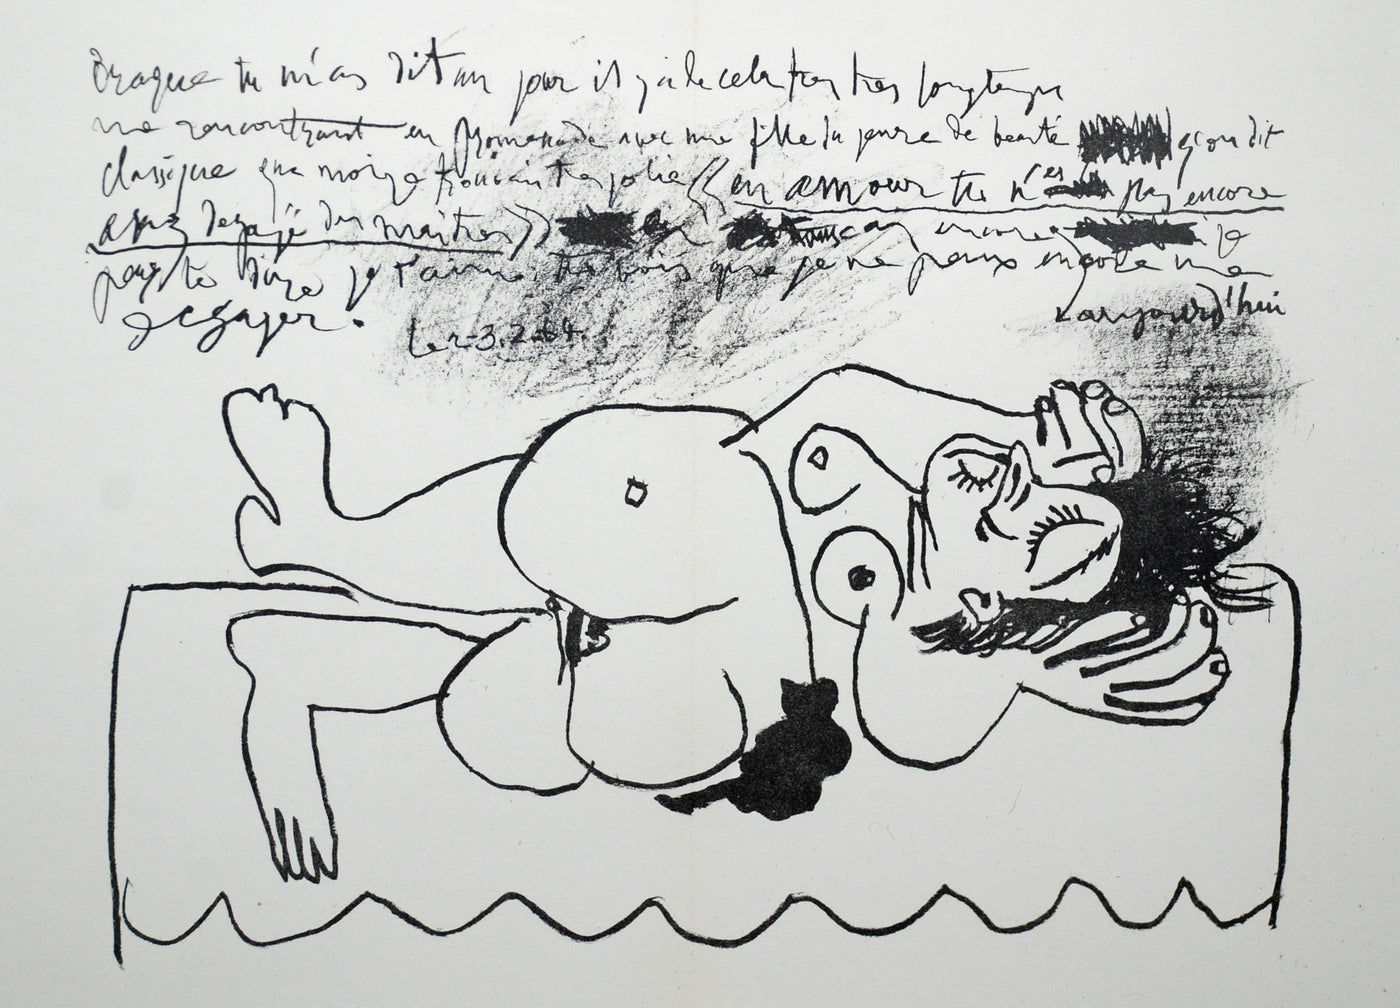 Braque tu m'as dit un jour il y a de cela tres tres longtemps
me rencontrant en promenade avec une fille du genre de beauté qon dit
classique que moi je trouvais tres jolie « en amour tu n'es pas encore
assez degagé des maitres » encore je
peux te dire je t'aime tu vois que je ne peux encore me
aujourd'hui
degager.
Le 3.2.64.